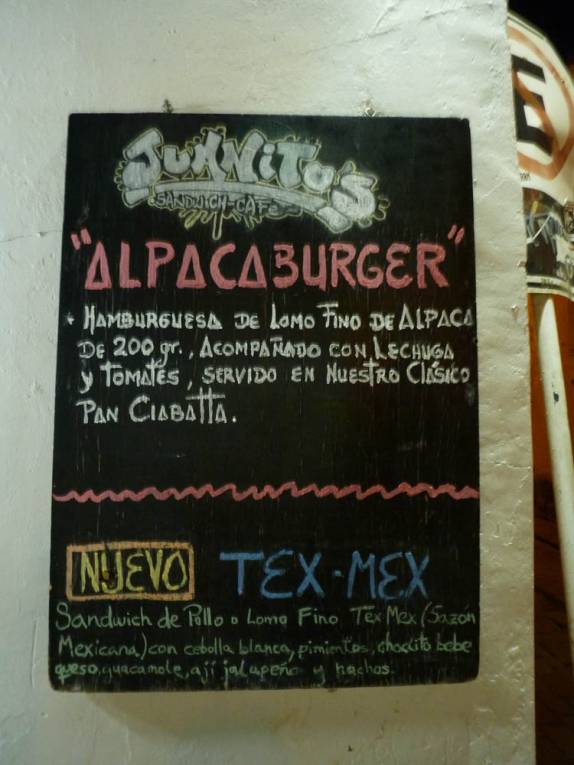 JUANITO'S
SANDWICH-CAFE
"ALPACABURGER"
HAMBURGUESA DE LOMO FINO DE ALPACA
DE 200 gr., ACOMPAÑADO CON LECHUGA
Y TOMATES, SERVIDO EN NUESTRO CLÁSICO
PAN CIABATTA.
NUEVO TEX-MEX
Sandwich de Pollo o Lomo Fino Tex Mex (Sazón
Mexicana) con cebolla blanca, pimientos, choclito bebe
queso, guacamole, ají jalapeño y nachos.